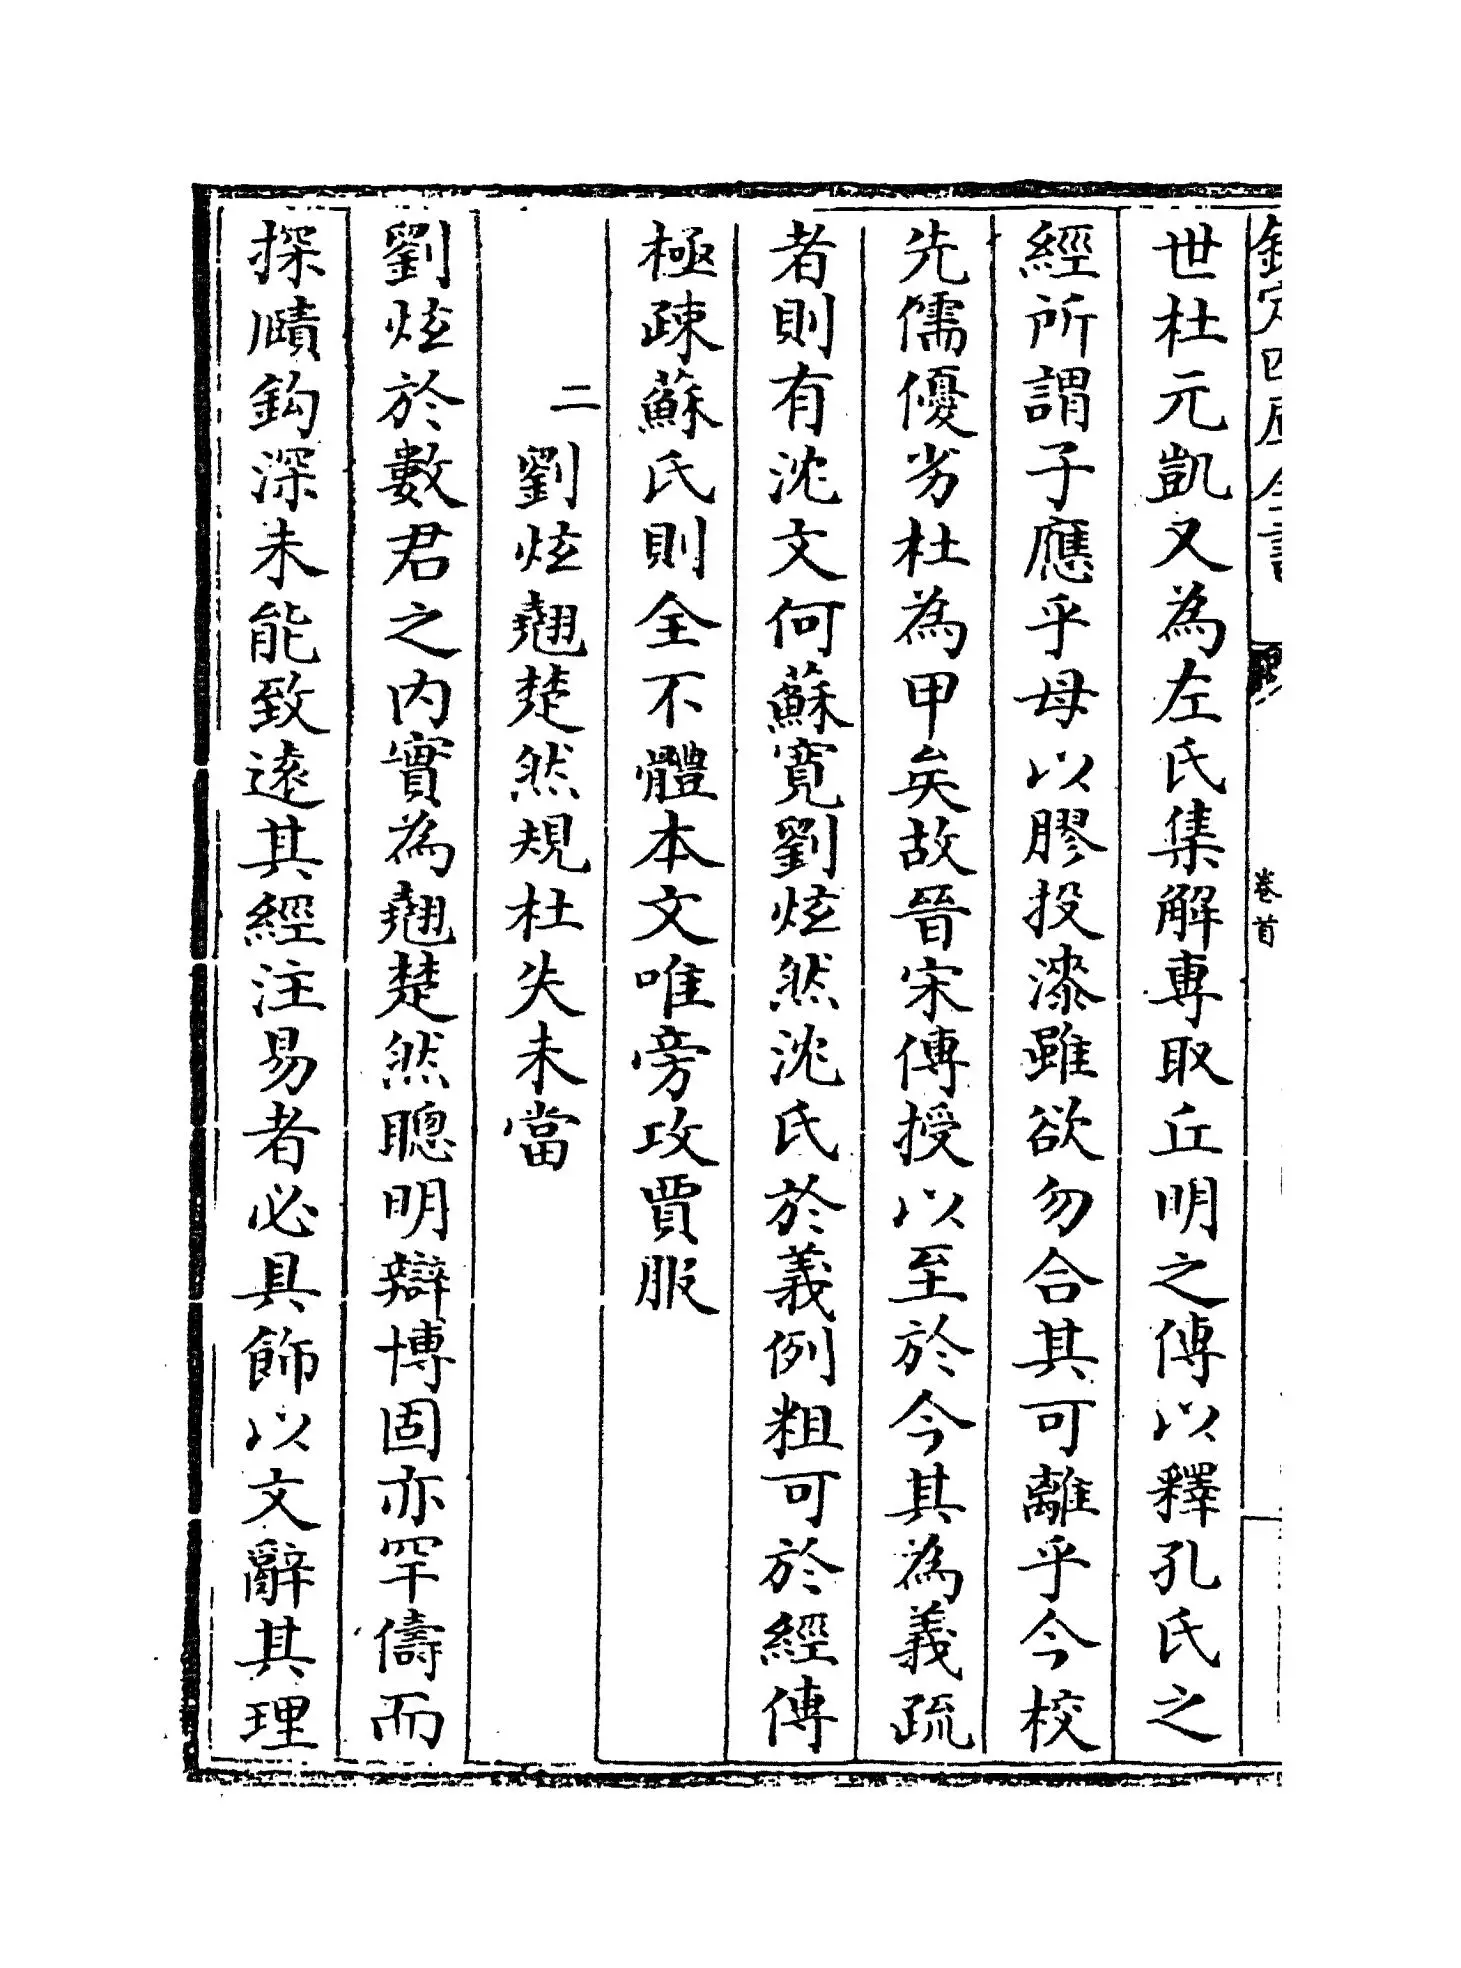 欽定四庫全書
卷首
世杜元凱又為左氏集解專取丘明之傳以釋孔氏之
經所謂子應乎母以膠投漆雖欲勿合其可離乎今校
先儒優劣杜為甲矣故晉宋傳授以至於今其為義疏
者則有沈文何蘇寬劉炫然沈氏於義例粗可於經傳
極疎蘇氏則全不體本文唯旁攻賈服
二劉炫翹楚然規杜失未當
劉炫於數君之內實為翹楚然聰明辯博固亦罕儔而
探賾鈎深未能致遠其經注易者必具飾以文辭其理